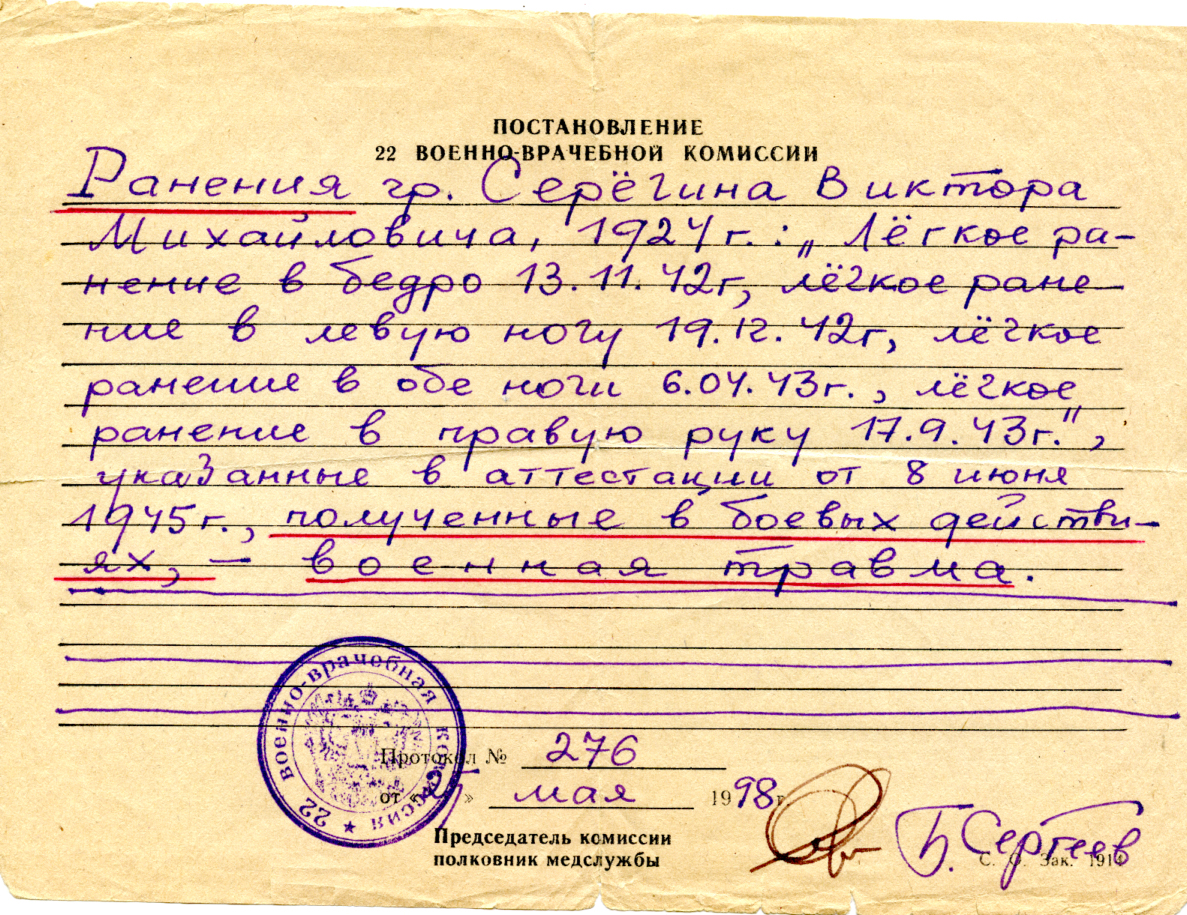 ПОСТАНОВЛЕНИЕ
22 ВОЕННО-ВРАЧЕБНОЙ КОМИССИИ
Ранения гр. Серёгина Виктора
Михайловича, 1924г.: „Лёгкое ра-
нение в бедро 13.11.42г, лёгкое ране-
ние в левую ногу 19.12.42г, лёгкое
ранение в обе ноги 6.04.43г., лёгкое
ранение в правую руку 17.9.43г.",
указанные в аттестации от 8 июня
1945г., полученные в боевых действи-
ях, – военная травма.
22 военно-врачебная комиссия
Протокол № 276
от » мая 1998 г.
Председатель комиссии
полковник медслужбы
Б. Сергеев
Зак. 191